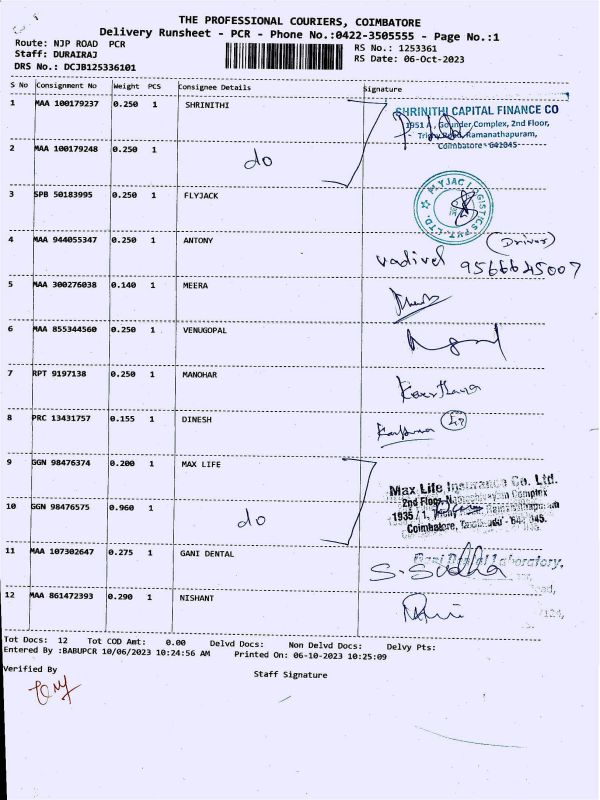 THE PROFESSIONAL COURIERS, COIMBATORE
Delivery Runsheet - PCR - Phone No.:0422-3505555 - Page No.:1
Route: NJP ROAD PCR
RS No.: 1253361
Staff: DURAIRAJ
RS Date: 06-Oct-2023
DRS No.: DCJB125336101
S No Consignment No Weight PCS Consignee Details Signature
1 MAA 100179237 0.250 1 SHRINITHI
SHRINITHI CAPITAL FINANCE CO
1951 A, Gounder Complex, 2nd Floor,
Ramanathapuram,
Coimbatore - 641045
2 MAA 100179248 0.250 1 do
3 SPB 50183995 0.250 1 FLYJACK
MYJAC LOGISTICS PVT. LTD.
4 MAA 944055347 0.250 1 ANTONY
vadivel (Driver)
9566645007
5 MAA 300276038 0.140 1 MEERA
6 MAA 855344560 0.250 1 VENUGOPAL
7 RPT 9197138 0.250 1 MANOHAR
8 PRC 13431757 0.155 1 DINESH
9 GGN 98476374 0.200 1 MAX LIFE
Max Life Insurance Co. Ltd.
2nd Floor, Complex
1935 / 1,
Coimbatore, Tamilnadu - 641 045.
10 GGN 98476575 0.960 1 do
11 MAA 107302647 0.275 1 GANI DENTAL
Gani Dental Laboratory,
S. Sudha
12 MAA 861472393 0.290 1 NISHANT
Tot Docs: 12 Tot COD Amt: 0.00 Delvd Docs: Non Delvd Docs: Delvy Pts:
Entered By :BABUPCR 10/06/2023 10:24:56 AM Printed On: 06-10-2023 10:25:09
Verified By
Staff Signature